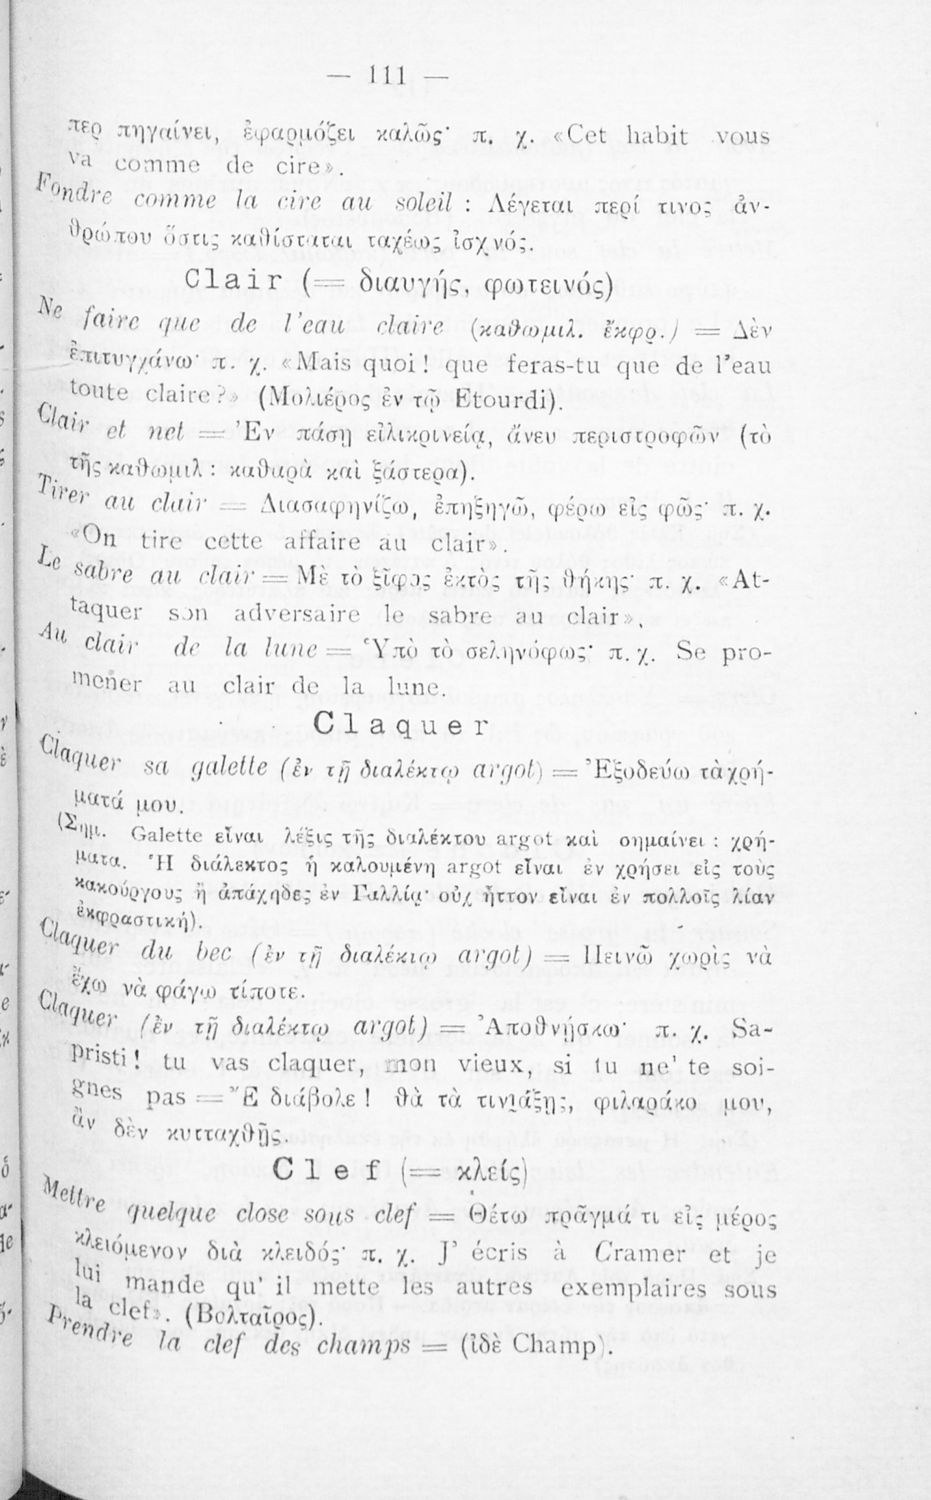 — 111 —
περ πηγαίνει, ἐφαρμόζει καλῶς· π. χ. «Cet habit vous
va comme de cire».
Fondre comme la cire au soleil : Λέγεται περί τινος ἀν-
θρώπου ὅστις καθίσταται ταχέως ἰσχνός.
Clair (= διαυγής, φωτεινός)
Ne faire que de l'eau claire (καθωμιλ. ἔκφρ.) = Δὲν
ἐπιτυγχάνω· π. χ. «Mais quoi ! que feras-tu que de l'eau
toute claire ?» (Μολιέρος ἐν τῷ Etourdi).
Clair et net = Ἐν πάσῃ εἰλικρινείᾳ, ἄνευ περιστροφῶν (τὸ
τῆς καθωμιλ : καθαρὰ καὶ ξάστερα).
Tirer au clair = Διασαφηνίζω, ἐπηξηγῶ, φέρω εἰς φῶς· π. χ.
«On tire cette affaire au clair».
Le sabre au clair = Μὲ τὸ ξίφος ἐκτὸς τῆς θήκης· π. χ. «At-
taquer son adversaire le sabre au clair».
Au clair de la lune = Ὑπὸ τὸ σεληνόφως· π. χ. Se pro-
mener au clair de la lune.
Claquer
Claquer sa galette (ἐν τῇ διαλέκτῳ argot) = Ἐξοδεύω τὰ χρή-
ματά μου.
(Σημ. Galette εἶναι λέξις τῆς διαλέκτου argot καὶ σημαίνει : χρή-
ματα. Ἡ διάλεκτος ἡ καλουμένη argot εἶναι ἐν χρήσει εἰς τοὺς
κακούργους ἢ ἀπάχηδες ἐν Γαλλίᾳ· οὐχ ἧττον εἶναι ἐν πολλοῖς λίαν
ἐκφραστική).
Claquer du bec (ἐν τῇ διαλέκτῳ argot) = Πεινῶ χωρὶς νὰ
ἔχω νὰ φάγω τίποτε.
Claquer (ἐν τῇ διαλέκτῳ argot) = Ἀποθνήσκω· π. χ. Sa-
pristi ! tu vas claquer, mon vieux, si tu ne' te soi-
gnes pas = Ἒ διάβολε ! θὰ τὰ τινάξῃς, φιλαράκο μου,
ἂν δὲν κυτταχθῇς.
Clef (= κλείς)
Mettre quelque close sous clef = Θέτω πρᾶγμά τι εἰς μέρος
κλειόμενον διὰ κλειδός· π. χ. J' écris à Cramer et je
lui mande qu' il mette les autres exemplaires sous
la clef». (Βολταῖρος).
Prendre la clef des champs = (ἰδὲ Champ).